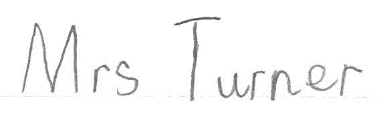 Mrs Turner